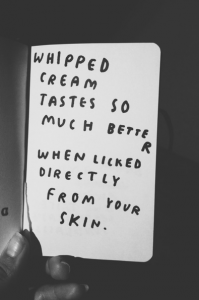 WHIPPED
CREAM
TASTES SO
MUCH BETTER
WHEN LICKED
DIRECTLY
FROM YOUR
SKIN.
a